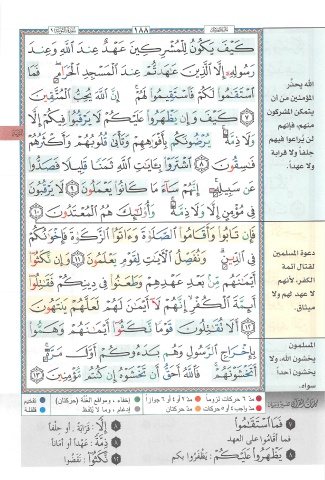 ١٨٨
كَيْفَ يَكُونُ لِلْمُشْرِكِينَ عَهْدٌ عِندَ اللَّهِ وَعِندَ
رَسُولِهِ إِلَّا الَّذِينَ عَاهَدتُّمْ عِندَ الْمَسْجِدِ الْحَرَامِ فَمَا
اسْتَقَامُوا لَكُمْ فَاسْتَقِيمُوا لَهُمْ إِنَّ اللَّهَ يُحِبُّ الْمُتَّقِينَ
٧ كَيْفَ وَإِن يَظْهَرُوا عَلَيْكُمْ لَا يَرْقُبُوا فِيكُمْ إِلًّا
وَلَا ذِمَّةً يُرْضُونَكُم بِأَفْوَاهِهِمْ وَتَأْبَىٰ قُلُوبُهُمْ وَأَكْثَرُهُمْ
فَاسِقُونَ ٨ اشْتَرَوْا بِآيَاتِ اللَّهِ ثَمَنًا قَلِيلًا فَصَدُّوا
عَن سَبِيلِهِ إِنَّهُمْ سَاءَ مَا كَانُوا يَعْمَلُونَ ٩ لَا يَرْقُبُونَ
فِي مُؤْمِنٍ إِلًّا وَلَا ذِمَّةً وَأُولَٰئِكَ هُمُ الْمُعْتَدُونَ ١٠
فَإِن تَابُوا وَأَقَامُوا الصَّلَاةَ وَآتَوُا الزَّكَاةَ فَإِخْوَانُكُمْ
فِي الدِّينِ وَنُفَصِّلُ الْآيَاتِ لِقَوْمٍ يَعْلَمُونَ ١١ وَإِن نَّكَثُوا
أَيْمَانَهُم مِّن بَعْدِ عَهْدِهِمْ وَطَعَنُوا فِي دِينِكُمْ فَقَاتِلُوا
أَئِمَّةَ الْكُفْرِ إِنَّهُمْ لَا أَيْمَانَ لَهُمْ لَعَلَّهُمْ يَنتَهُونَ
١٢ أَلَا تُقَاتِلُونَ قَوْمًا نَّكَثُوا أَيْمَانَهُمْ وَهَمُّوا
بِإِخْرَاجِ الرَّسُولِ وَهُم بَدَءُوكُمْ أَوَّلَ مَرَّةٍ
أَتَخْشَوْنَهُمْ فَاللَّهُ أَحَقُّ أَن تَخْشَوْهُ إِن كُنتُم مُّؤْمِنِينَ ١٣
الله يحذّر
المؤمنين من أن
يتمكن المشركون
منهم، فإنهم
لن يُراعوا فيهم
حلفاً ولا قرابة
ولا عهداً.
دعوة المسلمين
لقتال أئمة
الكفر، لأنهم
لا عهد لهم ولا
ميثاق.
المسلمون
يخشون الله، ولا
يخشون أحداً
سواه.
مدّ ٦ حركات لزوماً
مدّ ٢ أو ٤ أو ٦ جوازاً
إخفاء، ومواقع الغُنَّة (حركتان)
تفخيم
مدّ واجب ٤ أو ٥ حركات
مدّ حركتان
إدغام، وما لا يُلفَظ
قلقلة
٧ فَمَا اسْتَقَامُوا
فما أقاموا على العهد
٨ يَظْهَرُوا عَلَيْكُمْ: يَظْفَرُوا بكم
٨ إِلًّا: قَرابَةً، أو حِلْفاً
٨ ذِمَّةً: عَهْداً أو أَمَاناً
١٢ نَكَثُوا: نَقَضُوا